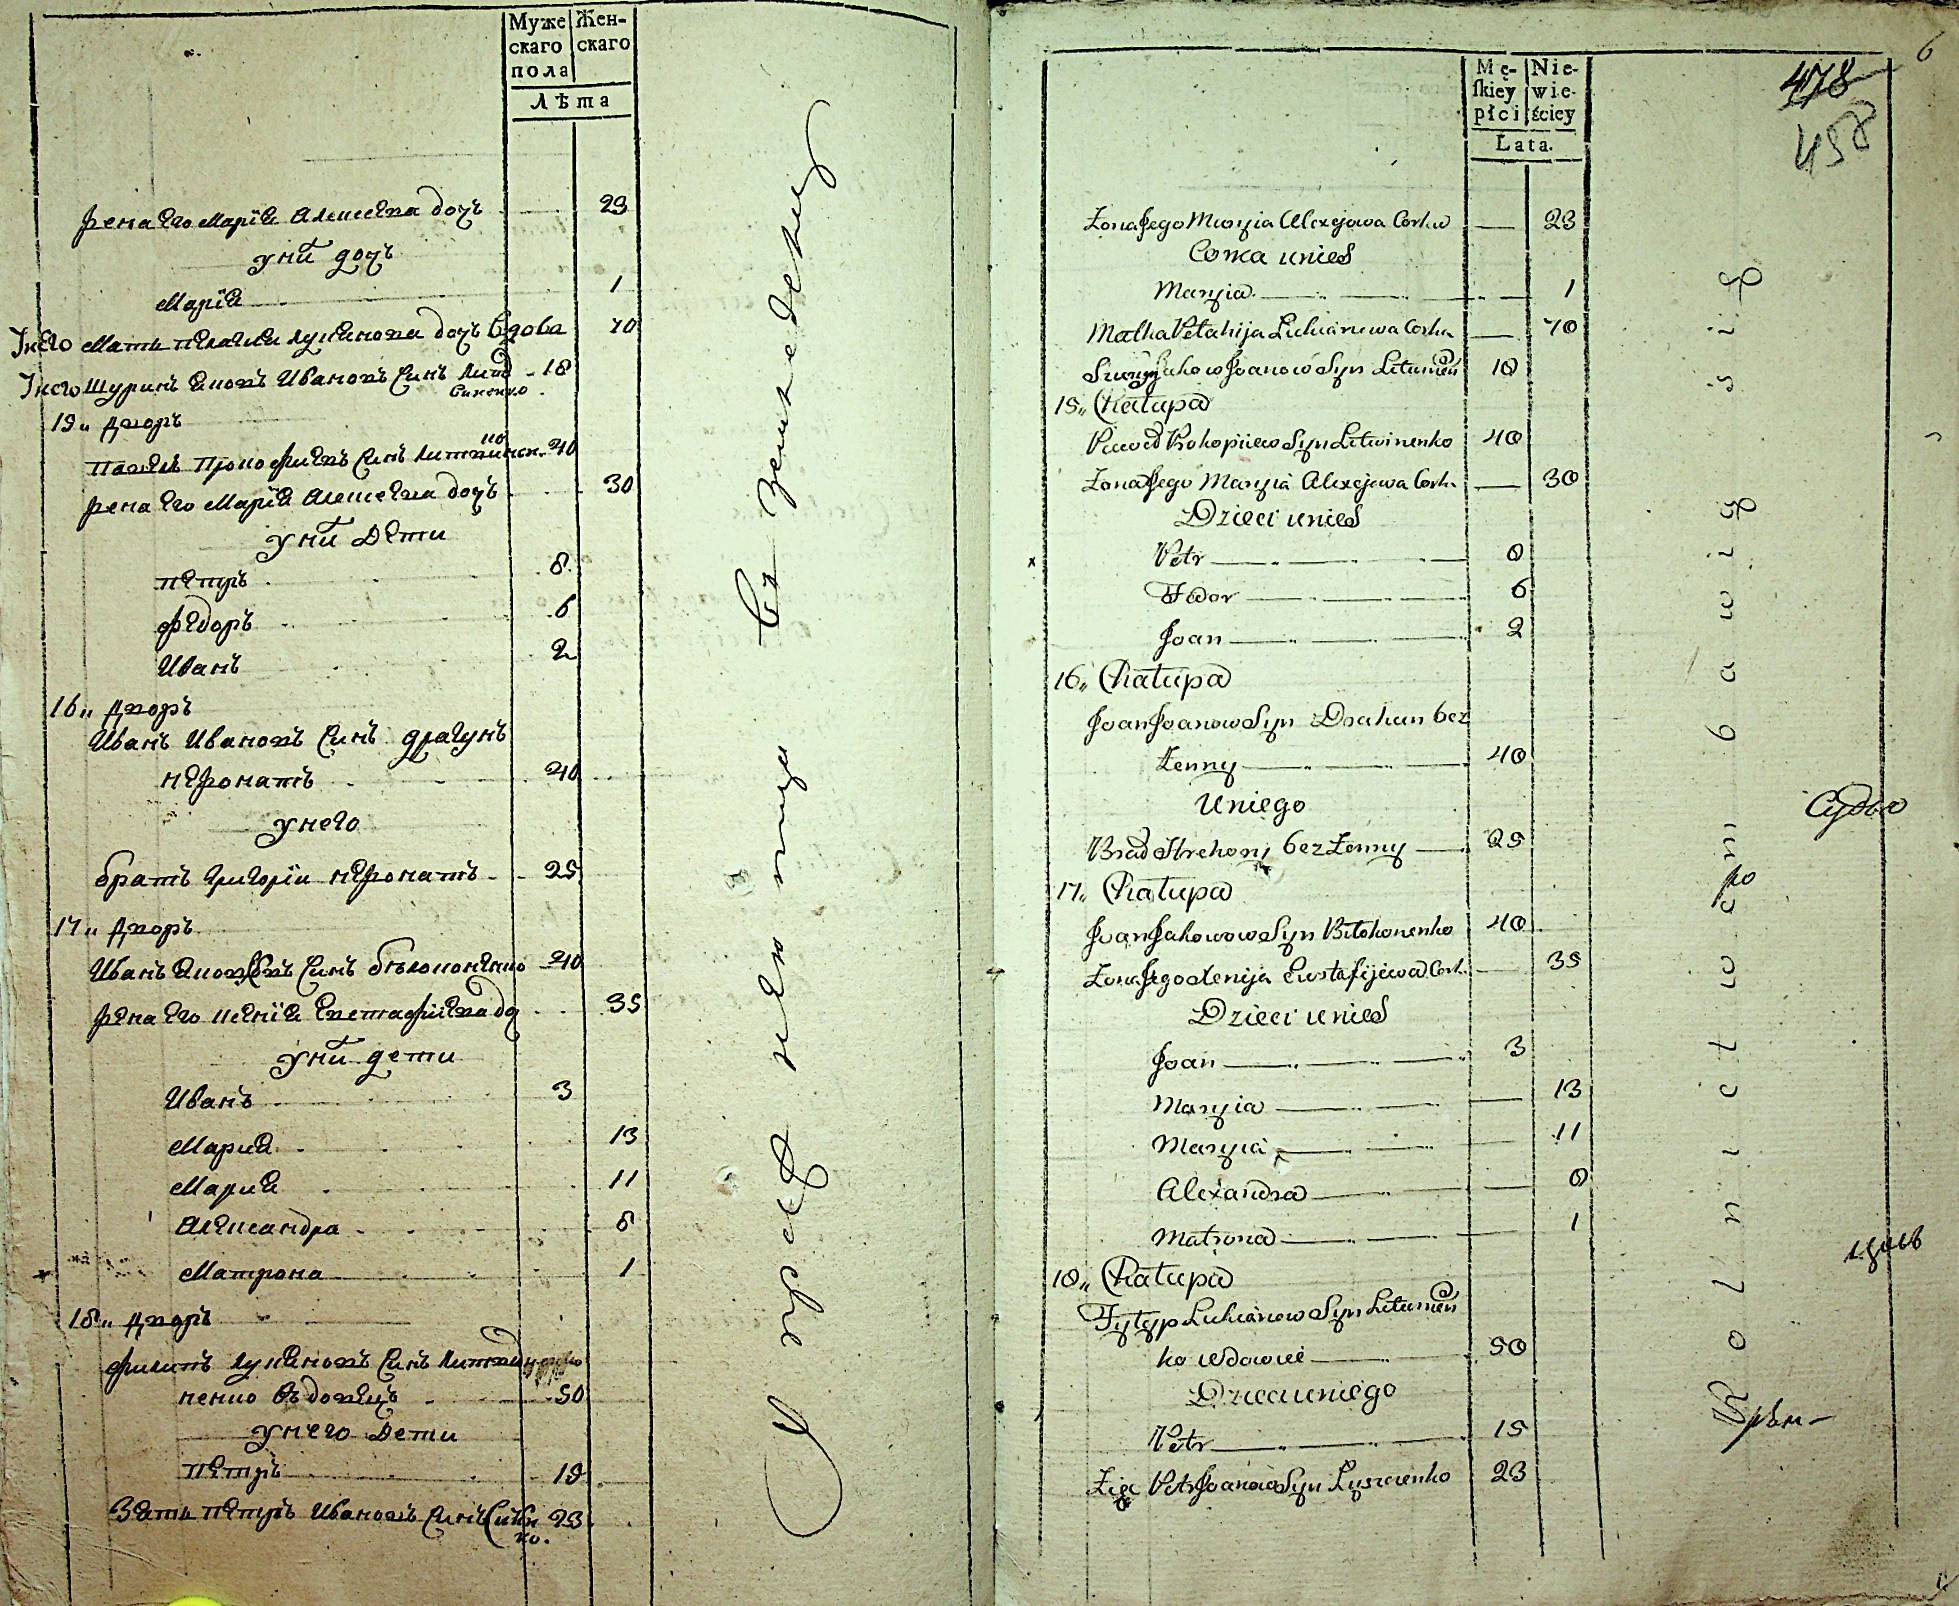 Муже Жен-
скаго скаго
пола
Лѣта
Жена Его Марія Алексѣева дочъ 23
У них дочъ
Марія 1
У него Мать Пелагия Лукянова дочъ вдова 70
У него Шуринъ Яковъ Ивановъ синъ Литвиненко 18
15„ Дворъ
Павелъ Прокофиевъ синъ Литвиненко 40
Жена Его Марія Алексеева дочъ 30
У них Дети
Петръ 8
Федоръ 6
Иванъ 2
16„ Дворъ
Иванъ Ивановъ синъ Драгунъ
нежонатъ 40
У него
братъ Григорій нежонатъ 25
17„ Дворъ
Иванъ Яковлевъ синъ Бѣлоконенко 40
Жена Его Ксения Евстафиева до 35
У них дети
Иванъ 3
Мария 13
Мария 11
Александра 8
Матрона 1
18„ Дворъ
Филипъ Лукяновъ синъ Литвиненко
ненко вдовецъ 50
У него Дети
Петръ 15
Зять Петръ Ивановъ синъ 23
въ Земле
6
478
458
Mę- Nie-
ſkiey wie-
płci ściey
Lata.
Żona Jego Maryia Alexejowa Corka 23
Corka u nich
Maryia 1
Matka Pelahija Lukianowa Corka 70
Szuryn Jakow Joanow Syn Litwinen 18
15„ Chałupa
Paweł Prokopijew Syn Litwinenko 40
Żona Jego Maryia Alexejewa Cork. 30
Dzieci u nich
Petr 8
Fedor 6
Joan 2
16„ Chałupa
Joan Joanow Syn Drahun bez
Żenny 40
U niego
Brad Hrehory bez Żenny 25
17„ Chałupa
Joan Jakowow Syn Biłokonenko 40
Żona Jego Xenija Eustafijewa Cork. 35
Dzieci u nich
Joan 3
Maryia 13
Maryia 11
Alexandra 8
Matrona 1
18„ Chałupa
Fyłyp Lukianow Syn Litwinen
ko wdowiec 50
Dzieci u niego
Petr 15
Zięc Petr Joanow Syn 23
Судья